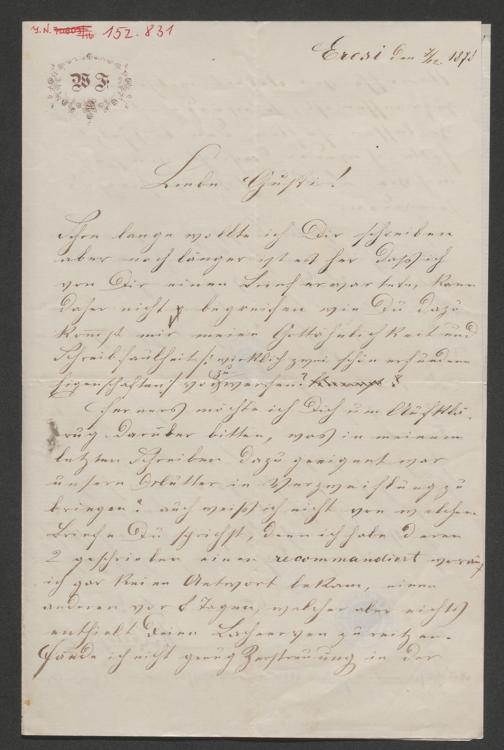 J.N. 152.831
WF
Ercsi den 7/12 1873
Liebe Gusti!
Schon lange wollte ich Dir schreiben
aber noch länger ist es her daß ich
von Dir einen Brief erwartete, kann
daher nicht begreifen wie Du dazu
kommst mir meine Gottähnlichkeit und
Schreibfaulheit (: wirklich zwei schön erfundene
Eigenschaften :) vorzuwerfen.
Ferners möchte ich Dich um Aufklä-
rung darüber bitten, was in meinem
letzten Schreiben dazu geeignet war
unsern in Verzweiflung zu
bringen? auch weiß ich nicht von welchem
Briefe Du sprichst, denn ich habe deren
2 geschrieben einen recommandiert worauf
ich gar keine Antwort bekam, einen
anderen vor 8 Tagen, welcher aber nichts
enthielt Deine zu reitzen.
Fände ich nicht genug Zerstreuung in der